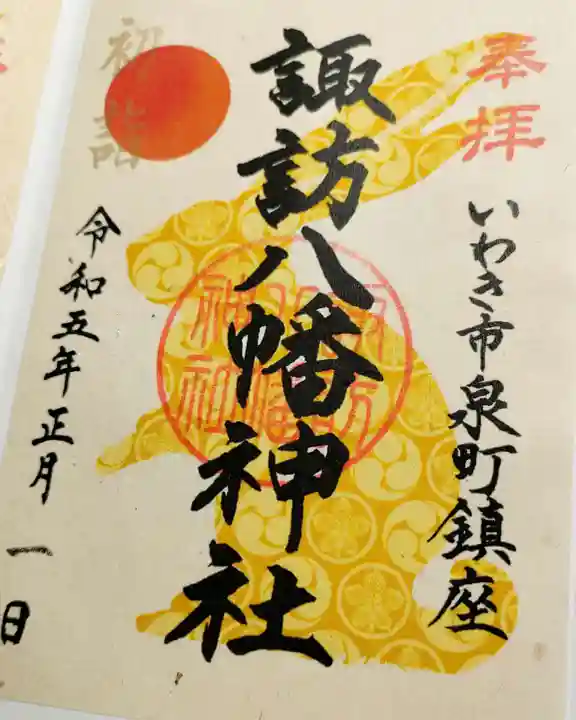 奉拝
いわき市泉町鎮座
諏訪八幡神社
諏訪
八幡
神社
初詣
令和五年正月一日